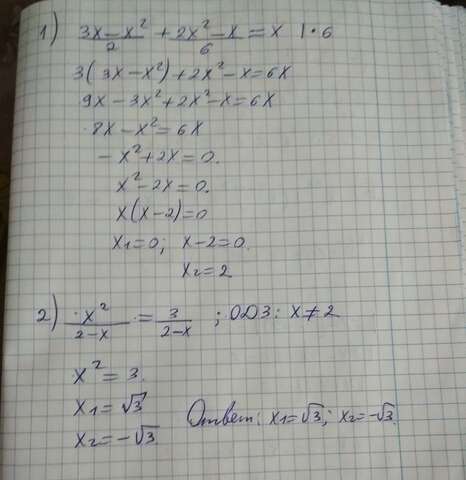 1) (3x-x²)/2 + (2x²-x)/6 = x |·6
3(3x-x²)+2x²-x=6x
9x-3x²+2x²-x=6x
8x-x²=6x
-x²+2x=0.
x²-2x=0.
x(x-2)=0
x₁=0; x-2=0.
x₂=2
2) x²/(2-x) = 3/(2-x) ; ОДЗ: x≠2
x²=3.
x₁=√3
x₂=-√3 Ответ: x₁=√3; x₂=-√3.